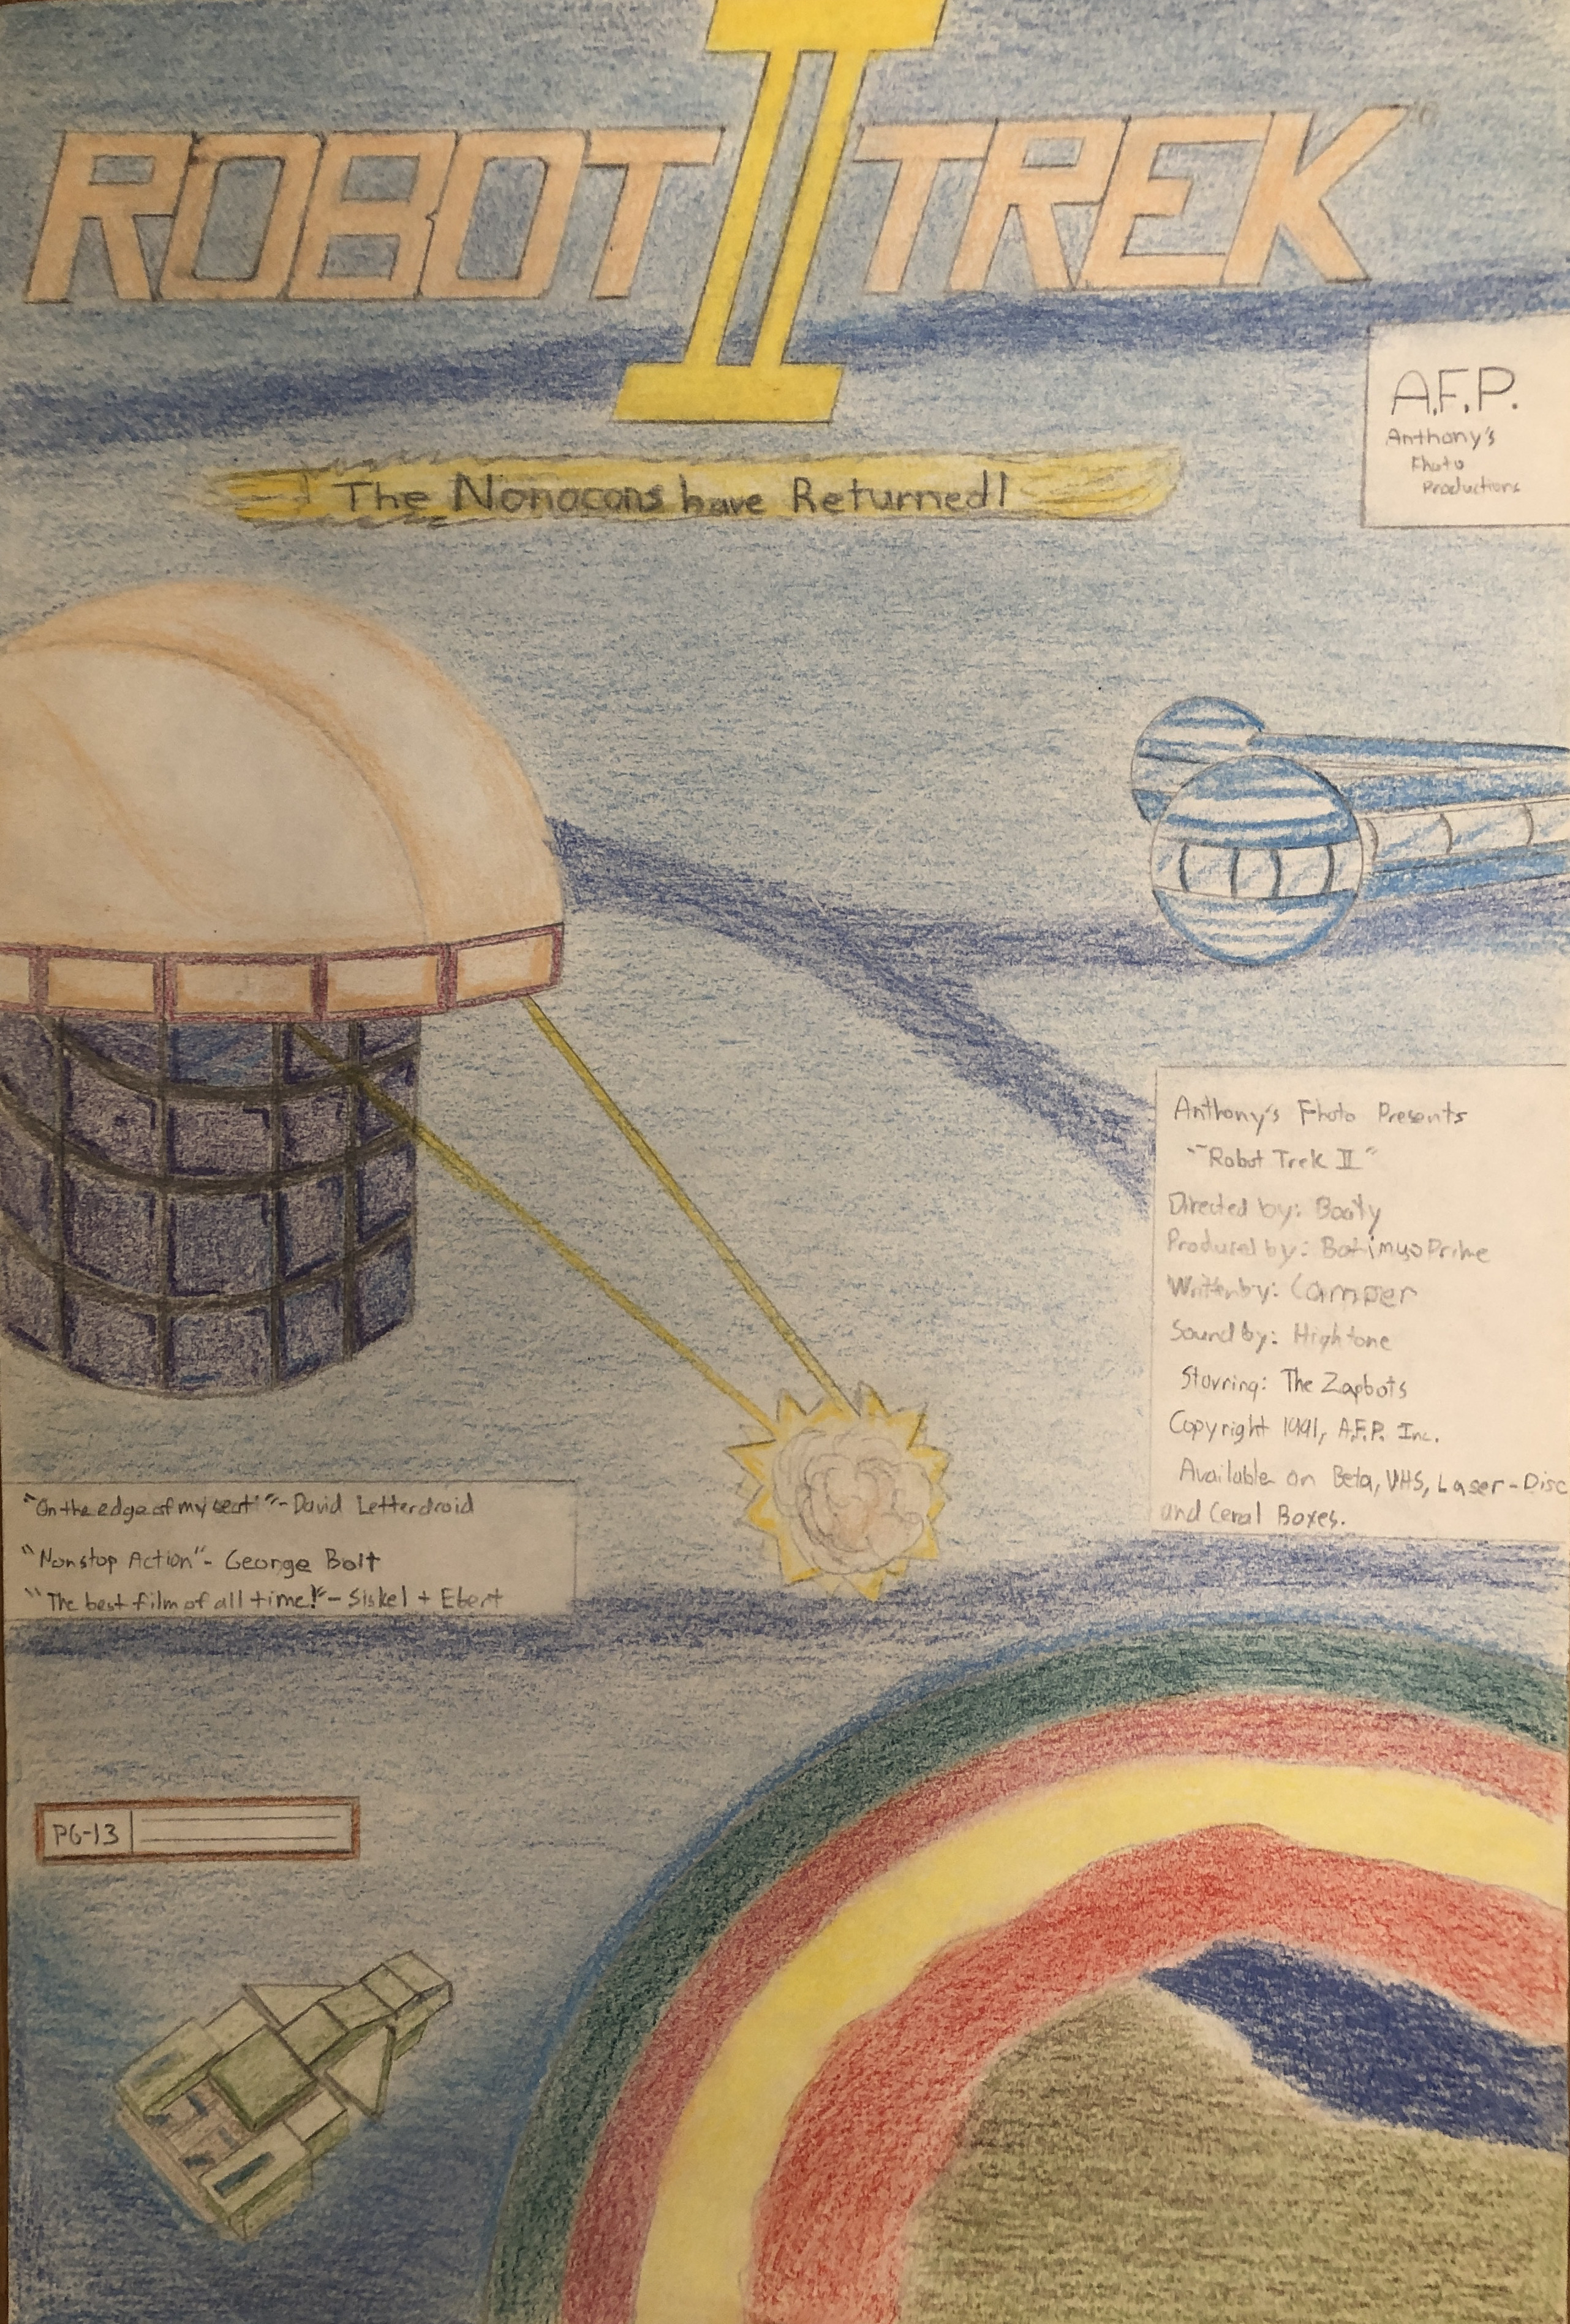 ROBOT II TREK
The Nonacons have Returned!
A.F.P.
Anthony's
Fhoto
Productions
Anthony's Fhoto Presents
"Robot Trek II"
Directed by: Booty
Produced by: Botimus Prime
Written by: Camper
Sound by: Hightone
Starring: The Zapbots
Copyright 1991, A.F.P. Inc.
Available on Beta, VHS, Laser-Disc
and Ceral Boxes.
"On the edge of my seat!"- David Letterdroid
"Nonstop Action"- George Bolt
"The best film of all time!"- Siskel + Ebert
PG-13